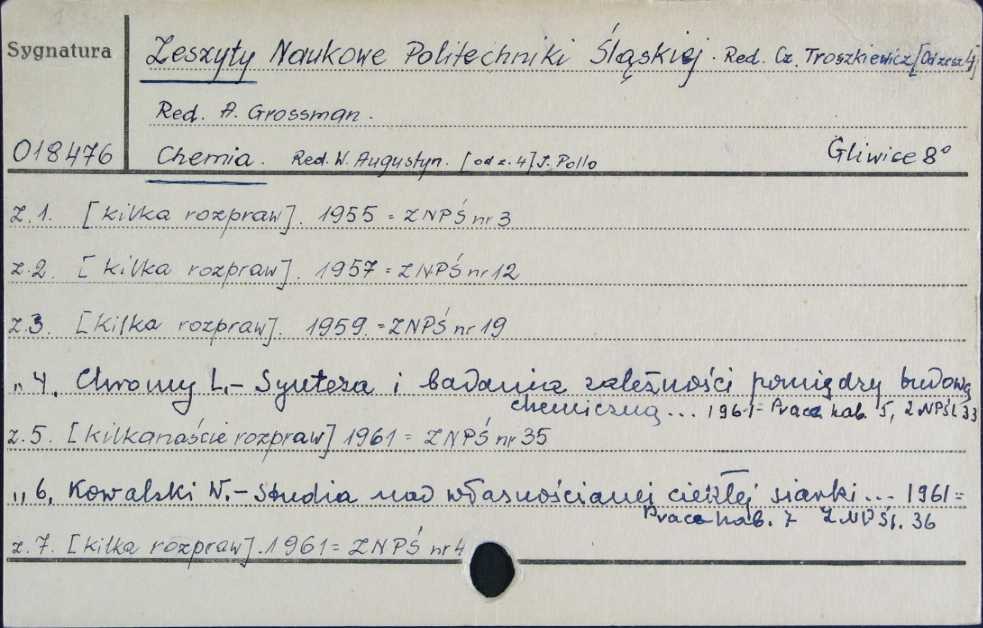 Sygnatura
Zeszyty Naukowe Politechniki Śląskiej. Red. Cz. Troszkiewicz [Od zesz 4]
Red. A. Grossman.
018476 Chemia. Red. W. Augustyn. [od z. 4] J. Pollo Gliwice 8°
z.1. [kilka rozpraw]. 1955 = ZNPŚ nr 3
z.2. [kilka rozpraw]. 1957 = ZNPŚ nr 12
z.3. [kilka rozpraw]. 1959. = ZNPŚ nr 19
„ 4. Chromy L. - Synteza i badania zależności pomiędzy budową
chemiczną ... 1961 = Praca hab. 5, ZNPŚl. 33
z.5. [kilkanaście rozpraw] 1961 = ZNPŚ nr 35
„ 6. Kowalski W. - Studia nad własnościami ciekłej siarki ... 1961 =
Praca hab. 7 ZNPŚl. 36
z.7. [kilka rozpraw]. 1961 = ZNPŚ nr 4